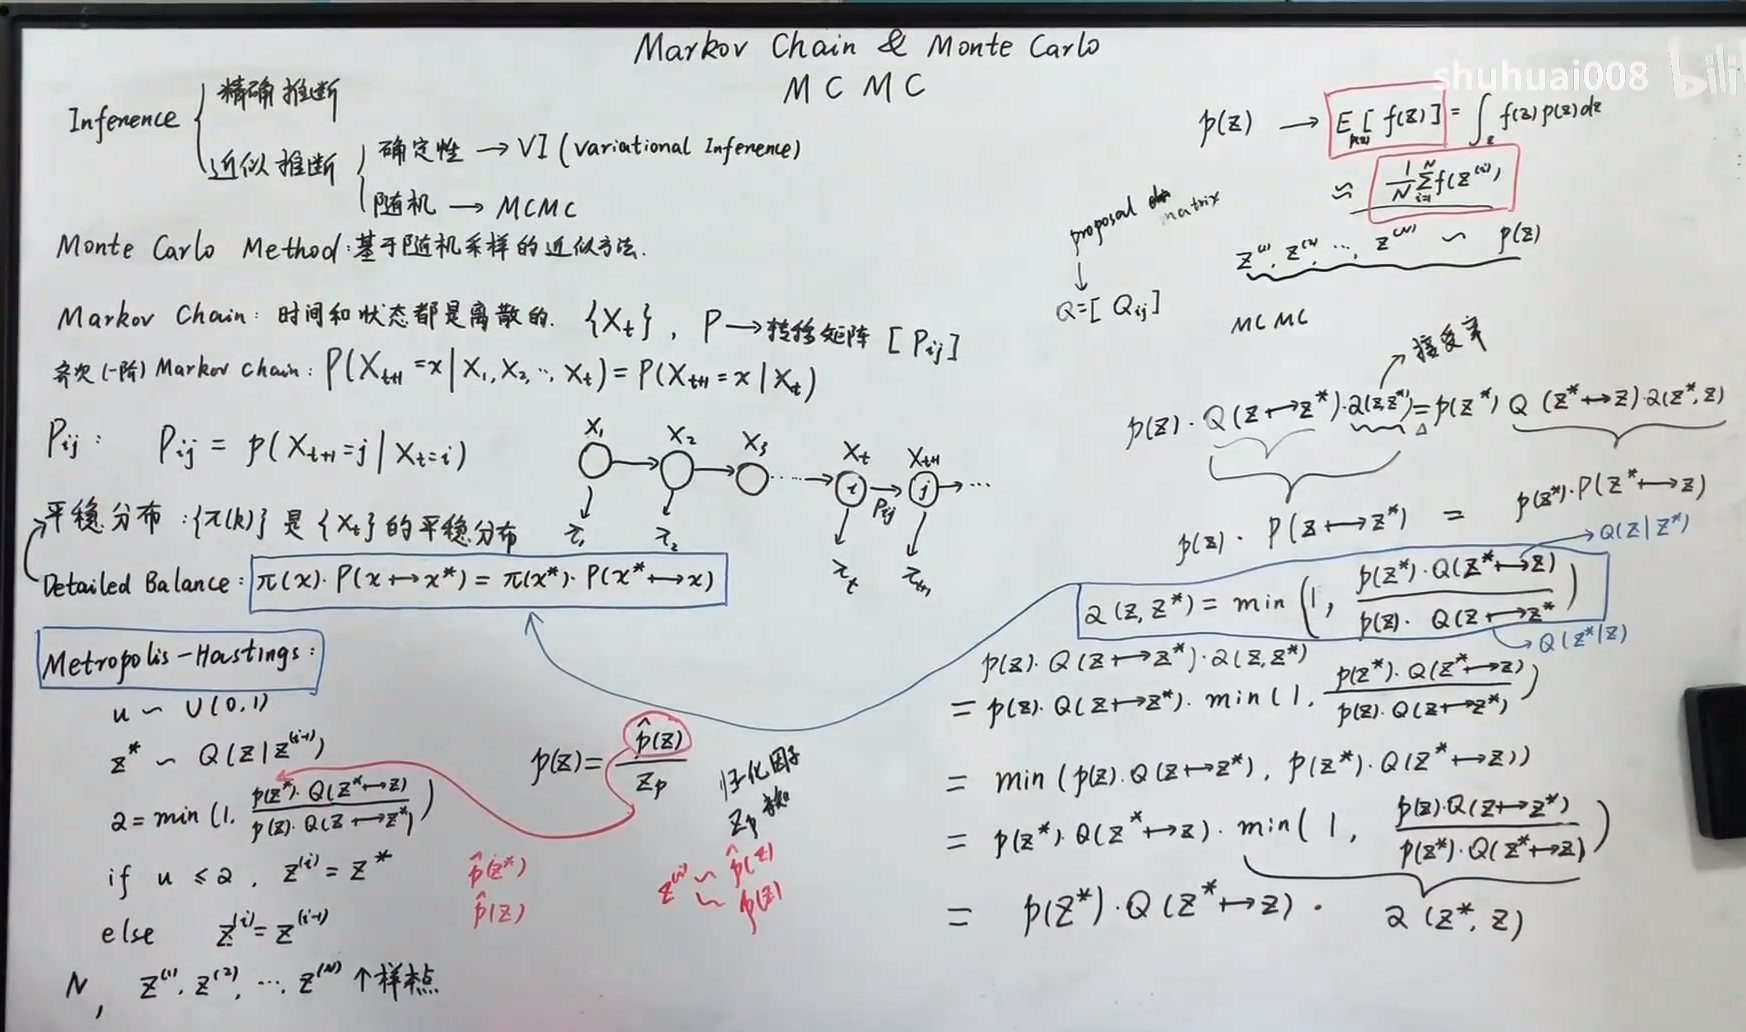 Markov Chain & Monte Carlo
MCMC
shuhuai008 bili
Inference
精确推断
近似推断
确定性 → VI (variational Inference)
随机 → MCMC
Monte Carlo Method: 基于随机采样的近似方法.
Markov Chain: 时间和状态都是离散的. {X_t}, P → 转移矩阵 [P_ij]
齐次(一阶) Markov Chain: P(X_{t+1}=x|X_1,X_2,..,X_t)=P(X_{t+1}=x|X_t)
P_ij: P_ij = p(X_{t+1}=j|X_t=i)
X_1 X_2 X_3 X_t X_{t+1}
i P_ij j ...
π_1 π_2 π_t π_{t+1}
平稳分布: {π(k)} 是 {X_t} 的平稳分布
Detailed Balance: π(x)·P(x↦x*) = π(x*)·P(x*↦x)
Metropolis-Hastings:
u ~ U(0,1)
z* ~ Q(z|z^(i-1))
α = min(1, p(z*)·Q(z*↦z) / p(z)·Q(z↦z*))
if u ≤ α, z^(i) = z*
else z^(i) = z^(i-1)
N, z^(1), z^(2), ..., z^(N) 个样本点
p(z) = p̂(z) / z_p
归一化因子
z_p
p̂(z*)
p̂(z)
z^(i) ~ p̂(z)
~ p(z)
p(z) → E_{p(z)}[f(z)] = ∫_z f(z)p(z)dz
≈ 1/N Σ_{i=1}^N f(z^(i))
z^(1), z^(2), ..., z^(N) ~ p(z)
MCMC
proposal matrix
Q=[Q_ij]
接受率
p(z)·Q(z↦z*)·α(z,z*) = p(z*) Q(z*↦z)·α(z*,z)
p(z)·P(z↦z*) = p(z*)·P(z*↦z)
Q(z|z*)
α(z,z*) = min(1, p(z*)·Q(z*↦z) / p(z)·Q(z↦z*)
Q(z*|z)
p(z)·Q(z↦z*)·α(z,z*)
= p(z)·Q(z↦z*)·min(1, p(z*)·Q(z*↦z) / p(z)·Q(z↦z*))
= min(p(z)·Q(z↦z*), p(z*)·Q(z*↦z))
= p(z*)·Q(z*↦z)·min(1, p(z)·Q(z↦z*) / p(z*)·Q(z*↦z))
= p(z*)·Q(z*↦z)· α(z*,z)